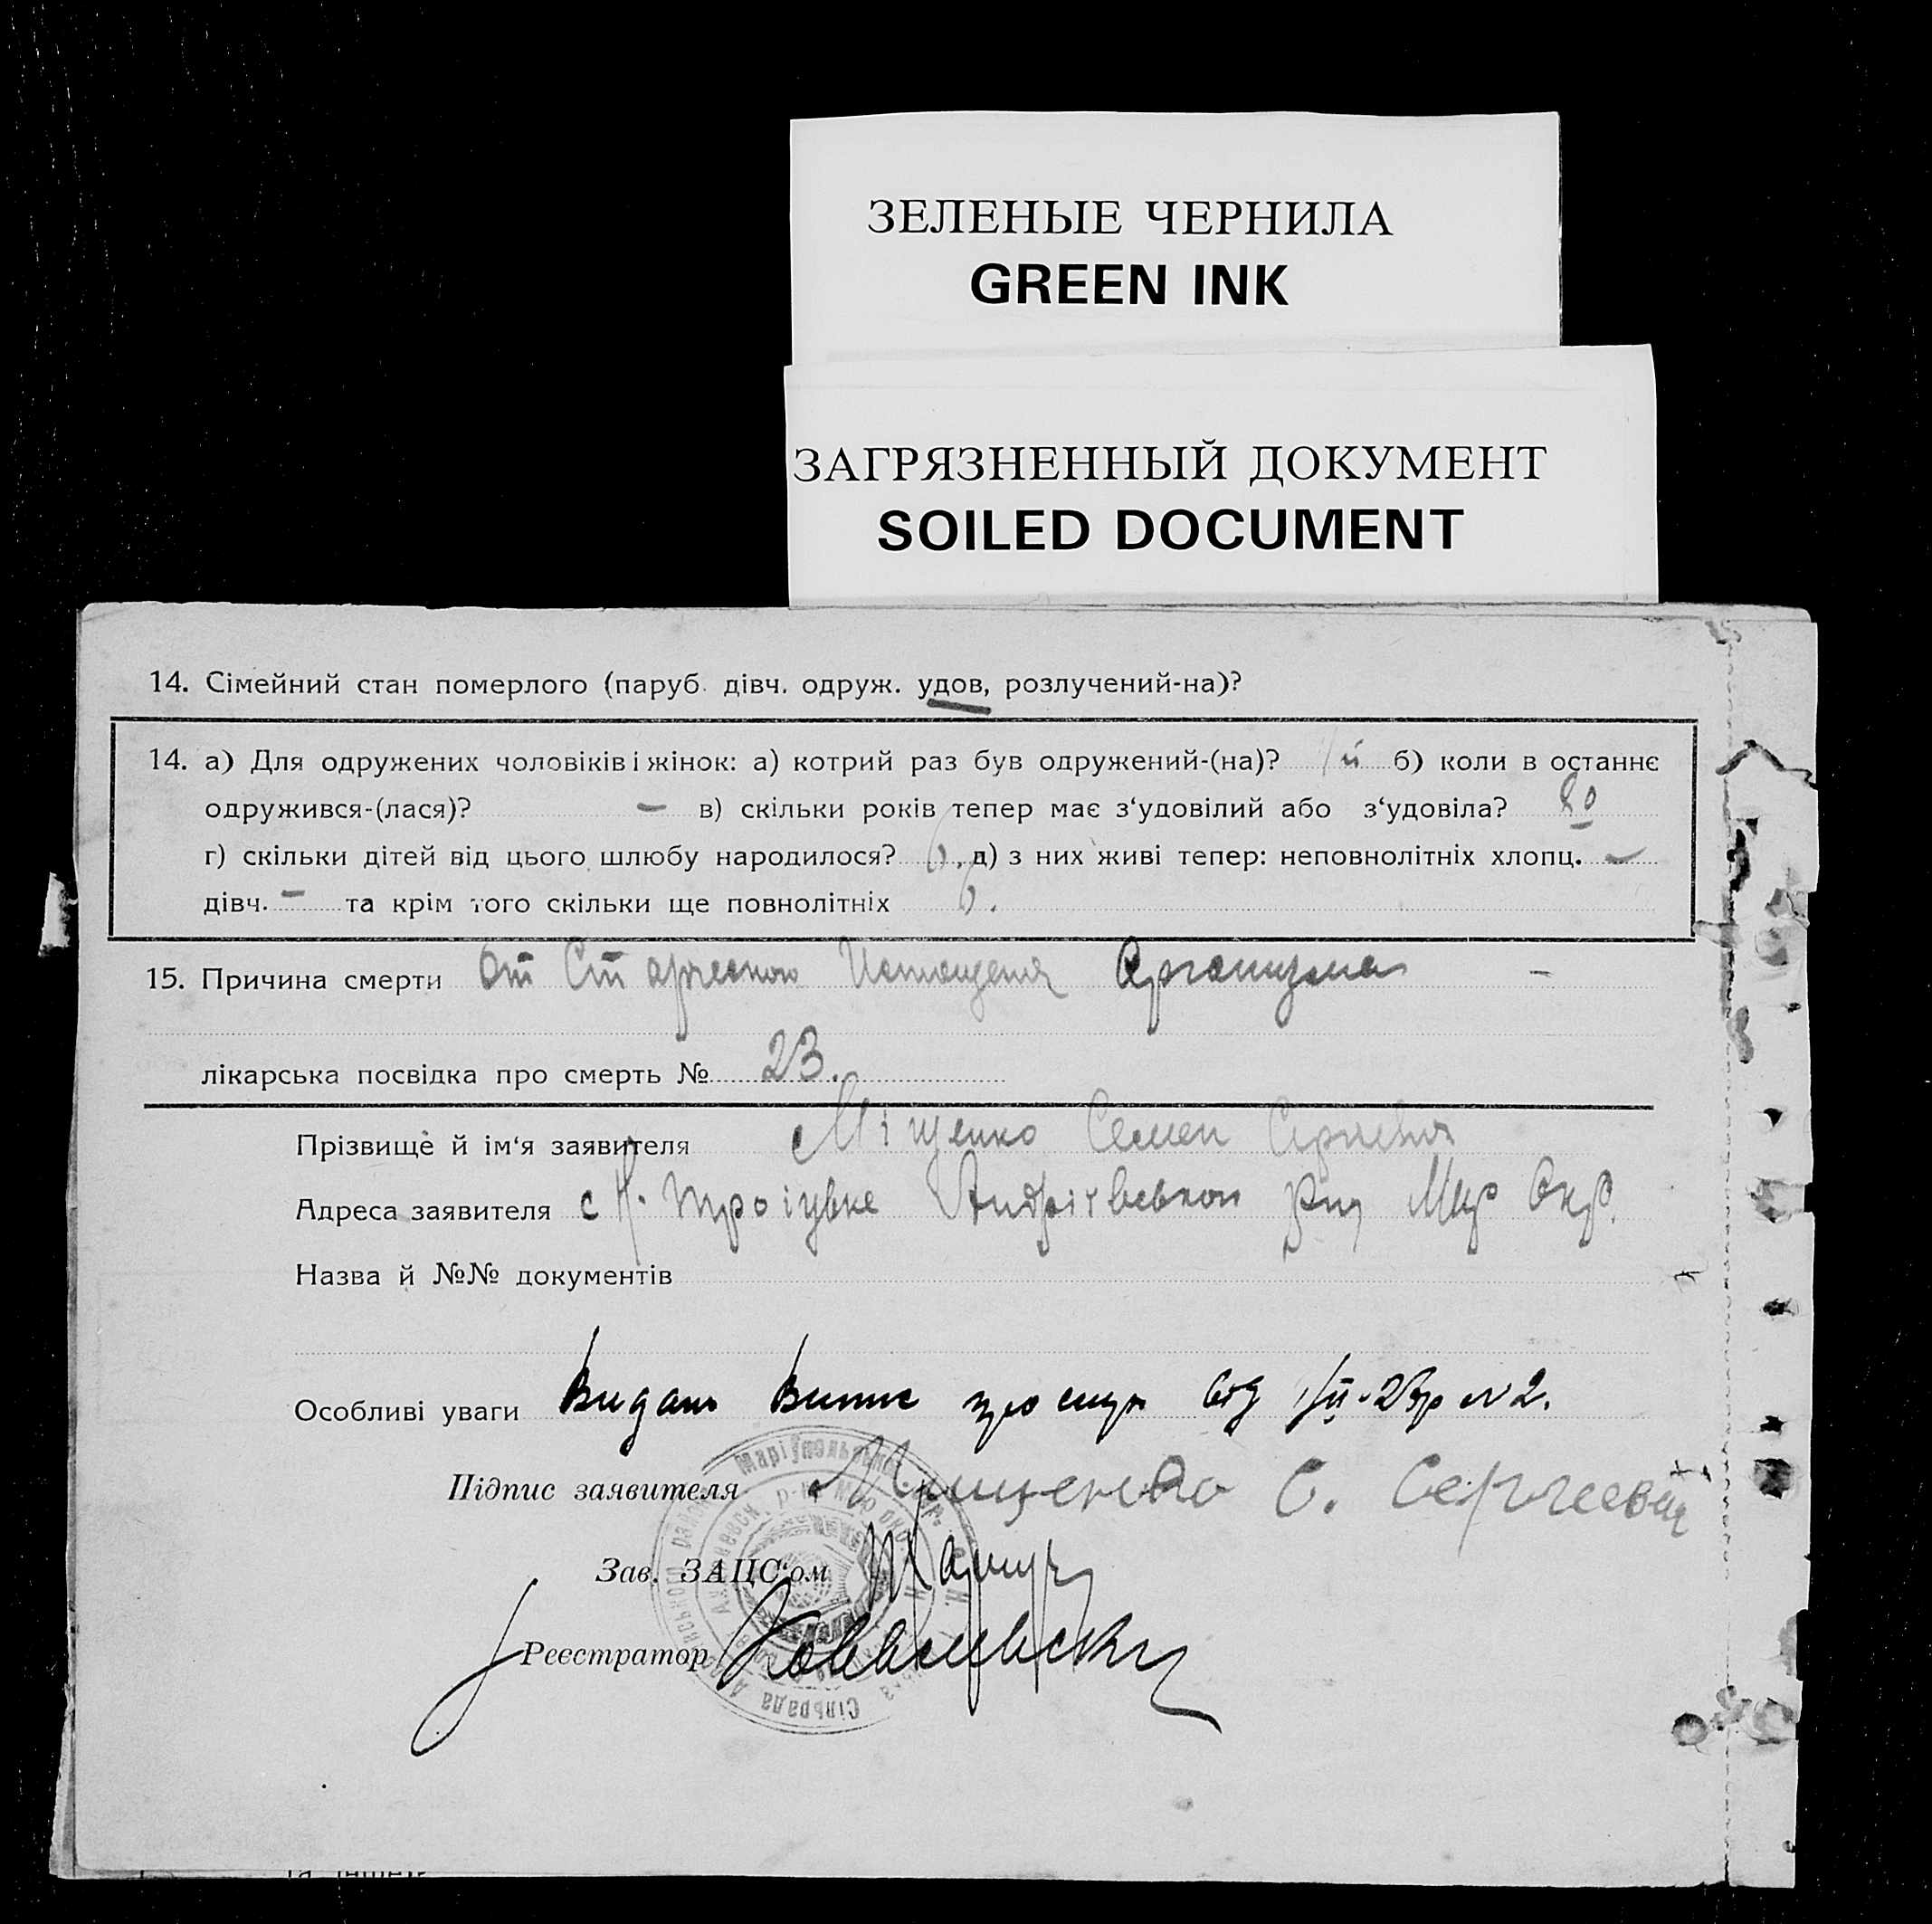 ЗЕЛЕНЫЕ ЧЕРНИЛА
GREEN INK
ЗАГРЯЗНЕННЫЙ ДОКУМЕНТ
SOILED DOCUMENT
14. Сімейний стан померлого (паруб. дівч. одруж. удов, розлучений-на)?
14. а) Для одружених чоловіків і жінок: а) котрий раз був одружений-(на)? 1й б) коли в останнє
одружився-(лася)? — в) скільки років тепер має з‘удовілий або з‘удовіла? 80
г) скільки дітей від цього шлюбу народилося? 6, д) з них живі тепер: неповнолітніх хлопц. —
дівч. — та крім того скільки ще повнолітніх 6.
15. Причина смерти От Старческого Истощения Организма —
лікарська посвідка про смерть № 23.
Прізвище й ім‘я заявителя Міщенко Семен
Адреса заявителя с Н. Мар Окр.
Назва й №№ документів
Особливі уваги Видань Випис про смер від № 2.
Підпис заявителя Мищенко С. Сергеевич
Зав. ЗАЦС‘ом
Реєстратор Ковалевски
Сільрада